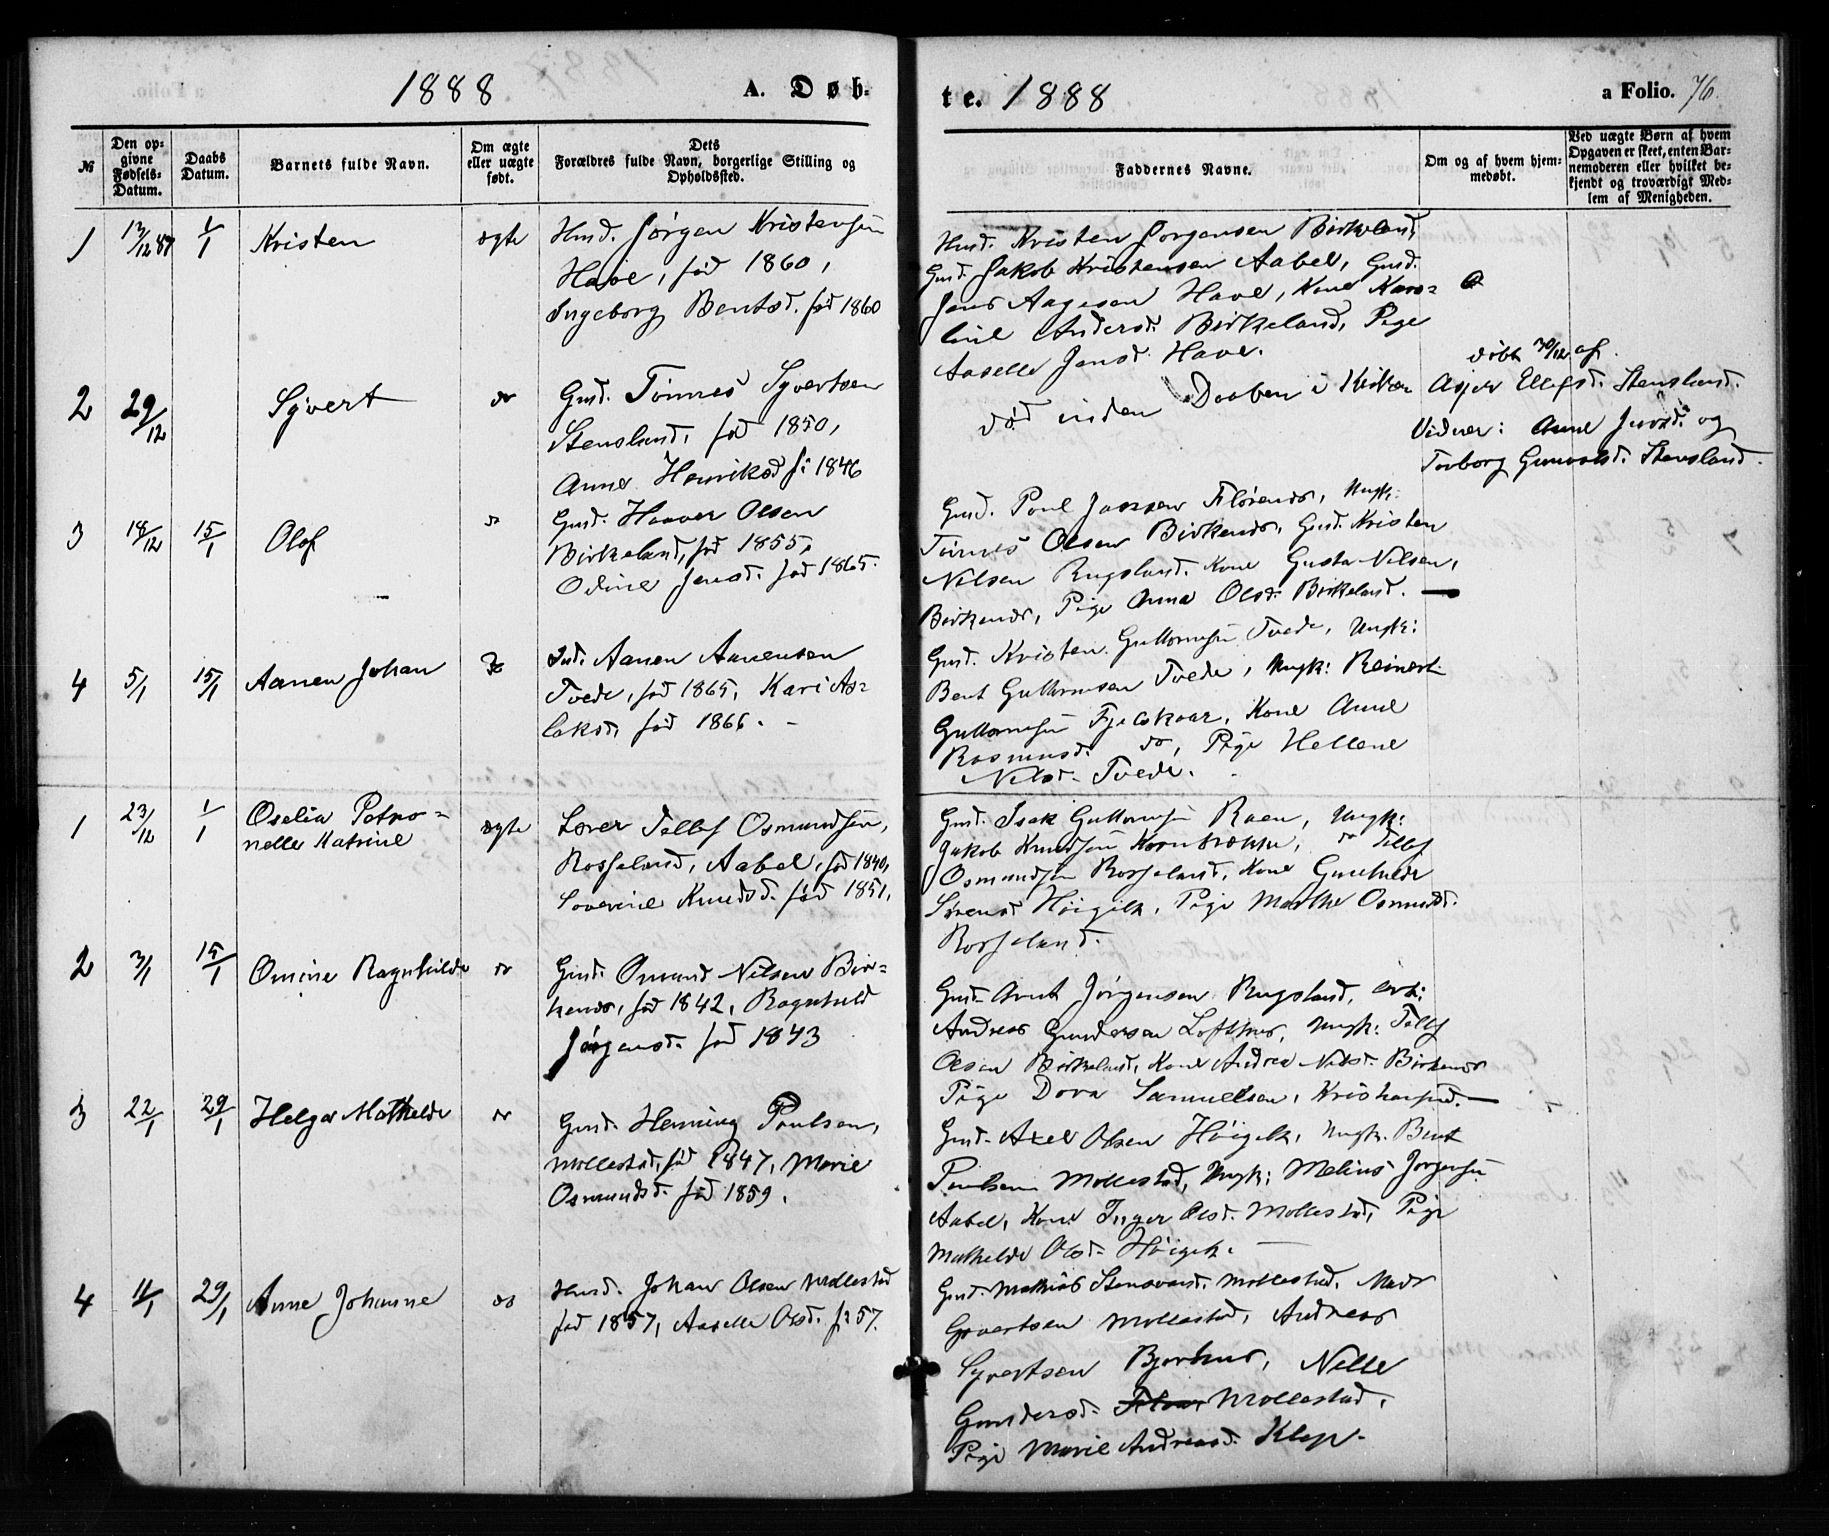 1888 A. Døb-
te. 1888 a Folio. 76.
№
Den op-
givne
Fødsels-
Datum.
Daabs
Datum.
Barnets fulde Navn.
Om ægte
eller uægte
født.
Dets
Forældres fulde Navn, borgerlige Stilling og
Opholdssted.
Faddernes Navne.
Om og af hvem hjem-
medøbt.
Ved uægte Børn af hvem
Opgaven er skeet, enten Bar-
nemoderen eller hvilket be-
kjendt og troværdigt Med-
lem af Menigheden.
1 13/12 87 1/1 Kristen ægte
Husd. Jørgen Kristensen
Have, fød 1860,
Ingeborg Bentsd. fød 1860
Husd. Kristen Jorgensen Birkeland,
Gmd. Jakob Kristensen Aabel, Gmd.
Jens Aagesen Have, Kone Karo-
line Andersd. Birkeland, Pige
Aaselle Jensd. Have.
2 29/12 Syvert do
Gmd. Tönnes Syvertsen
Stensland, fød 1850,
Anne Henriksd f: 1846
død inden Daaben i Kirken
døbt 30/12 af
Asjer Ellefsd. Stensland.
Vidner: Anne Jensd: og
Torborg Gunvalsd. Stensland.
3 18/12 15/1 Olof do
Gmd. Haaver Olsen
Birkeland, fød 1855,
Odine Jensd. fød 1865.
Gmd. Poul Jensen Flörenes, Ungk:
Tönnes Olsen Birkenes, Gmd. Kristen
Nilsen Rugsland. Kone Gusta Nilsen,
Birkenes, Pige Anna Olsd. Birkeland. —
4 5/1 15/1 Aanen Johan do
Ind. Aanen Aanensen
Tvede, fød 1865, Kari As-
laksd, fød 1866. -
Gmd. Kristen Guttormsen Tvede, Ungk:
Bent Guttormsen Tvede, Ungk: Reinert
Guttormsen Fjelskaar, Kone Anne
Rasmusd. do, Pige Hellene
Nilsd. Tvede.
1 23/12 1/1 Oselia Petro-
nelle Katrine ægte
Lærer Tellef Osmundsen,
Rosseland, Aabel, fød 1840,
Severine Knudsd. fød 1851.
Gmd. Isak Guttormsen Raen, Ungk:
Jakob Knudsen Kornbrække, do Tellef
Osmundsen Rosseland, Kone Gunhilde
Sörensd Höigilt, Pige Marthe Osmundsd.
Rosseland.
2 3/1 15/1 Omine Ragnhilde do
Gmd. Osmund Nilsen Bir-
kenes, fød 1842, Ragnhild
Jørgensd. fød 1843
Gmd. Arnt Jörgensen Rugsland, Arb:
Andreas Gundersen Lofthus, Ungk: Tellef
Olsen Birkeland, Kone Andrea Nilsd. Birkenes
Pige Dora Samuelsen, Kristiansand. —
3 22/1 29/1 Helga Mathelde do
Gmd. Henning Poulsen,
Mollestad, fød 1847, Marie
Osmundsd. fød 1859.
Gmd. Axel Olsen Höigilt, Ungk. Bent
Poulsen Mollestad, Ungk: Melius Jorgensen
Aabel, Kone Inger Olsd. Mollestad, Pige
Mathelde Olsd. Höigilt. —
4 11/1 29/1 Anne Johanne do
Husd. Johan Olsen Mollestad
fød 1857, Aaselle Olsd. f: 57.
Gmd. Mathias Stensvand, Mollestad, Mads
Syvertsen Mollestad, Andreas
Syvertsen Bjorhus, Nille
Gundersd. Mollestad,
Pige Marie Andreasd. Klep.